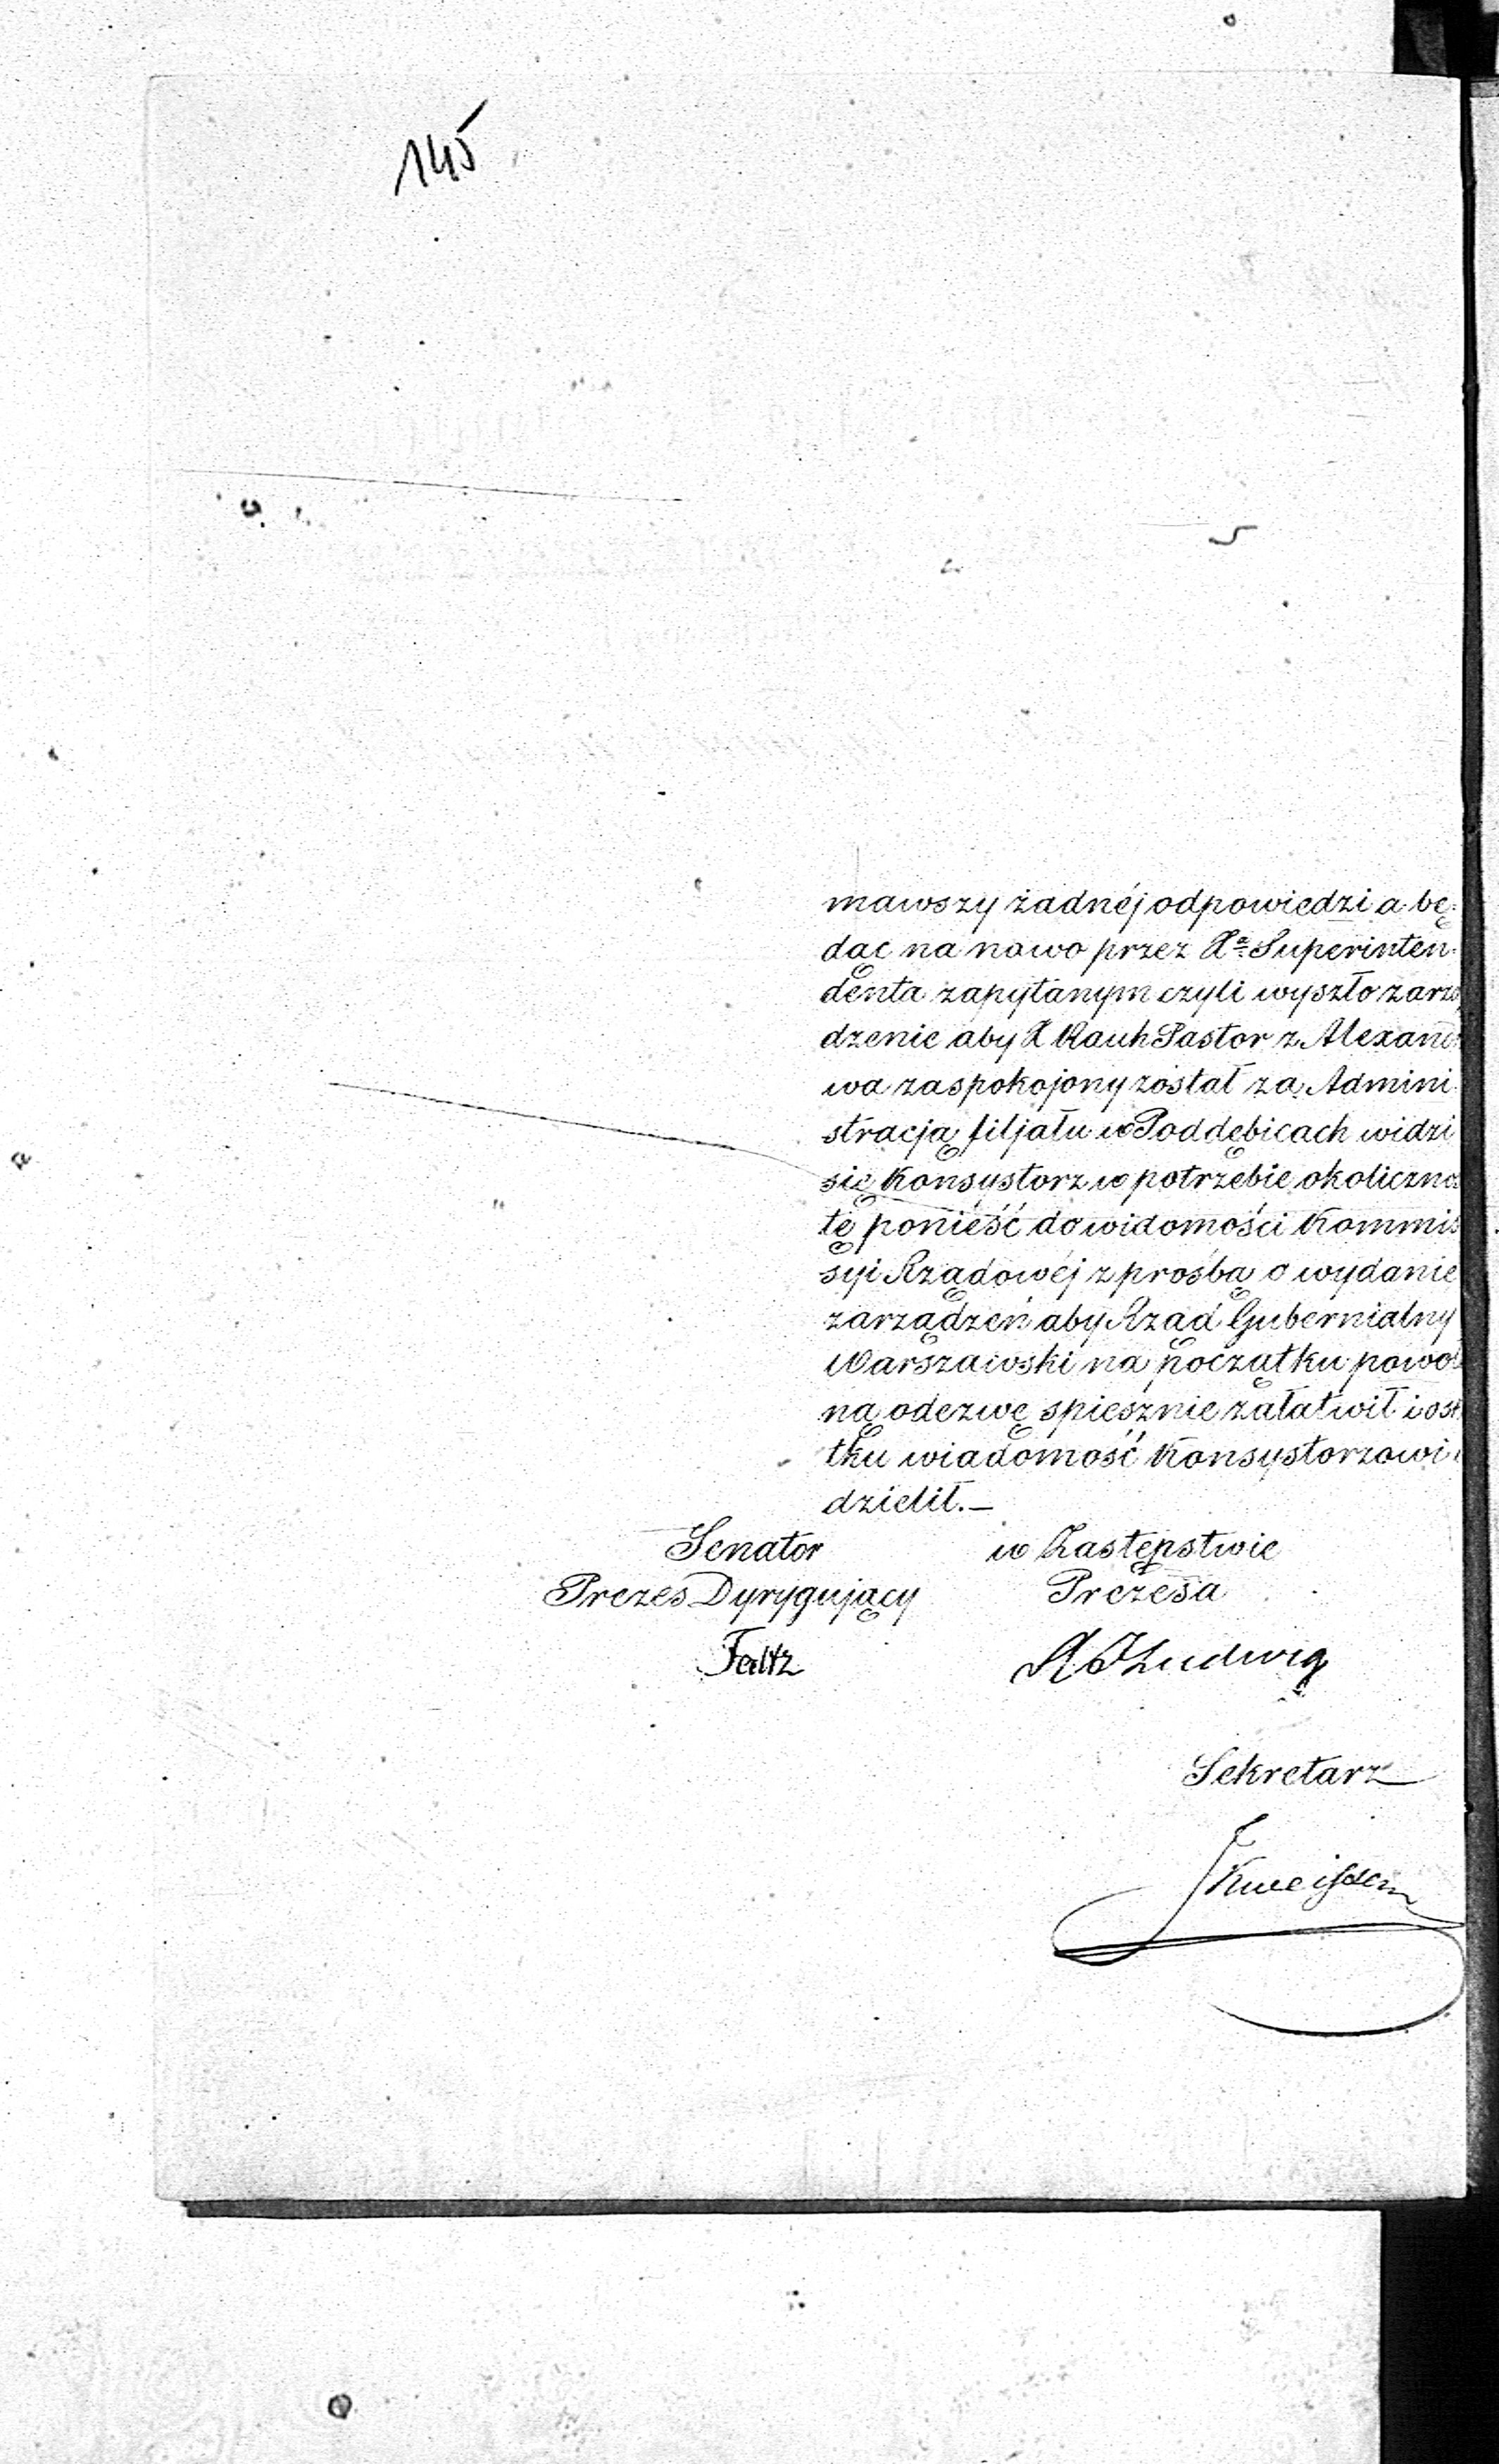 145
mawszy żadnéj odpowiedzi a bę:
dąc na nowo przez Xa Superinten:
denta zapytanym czyli wyszło zarzą
dzenie aby X Rauh Pastor z Alexand
wa zaspokojony został za Admini
stracją filjału w Poddębicach widzi
się Konsystorz w potrzebie okoliczno
tę ponieść do widomości Kommis
syi Rządowéj z prośbą o wydanie
zarządzeń aby Rząd Gubernialny
Warszawski na początku powoł
ną odezwę spiesznie załatwił i o sk
tku wiadomość Konsystorzowi
dzielił.—
Senator w Zastępstwie
Prezes Dyrygujący Prezesa
Faltz Ludwig
Sekretarz